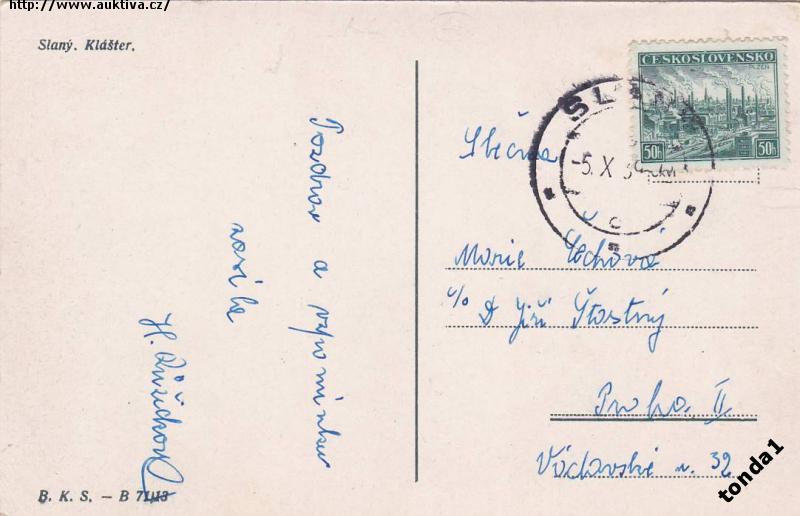 http://www.auktiva.cz/
Slaný. Klášter.
Pozdrav a vzpomínku
H. Růžičková
B. K. S. – B 71113
ČESKOSLOVENSKO
PLZEŇ
50h 50h
SLANÝ
-5. X. 3
Slečna
Marie Čechová
c/o D Jiří Šťastný
Praha II
Václavské n. 32
tonda1